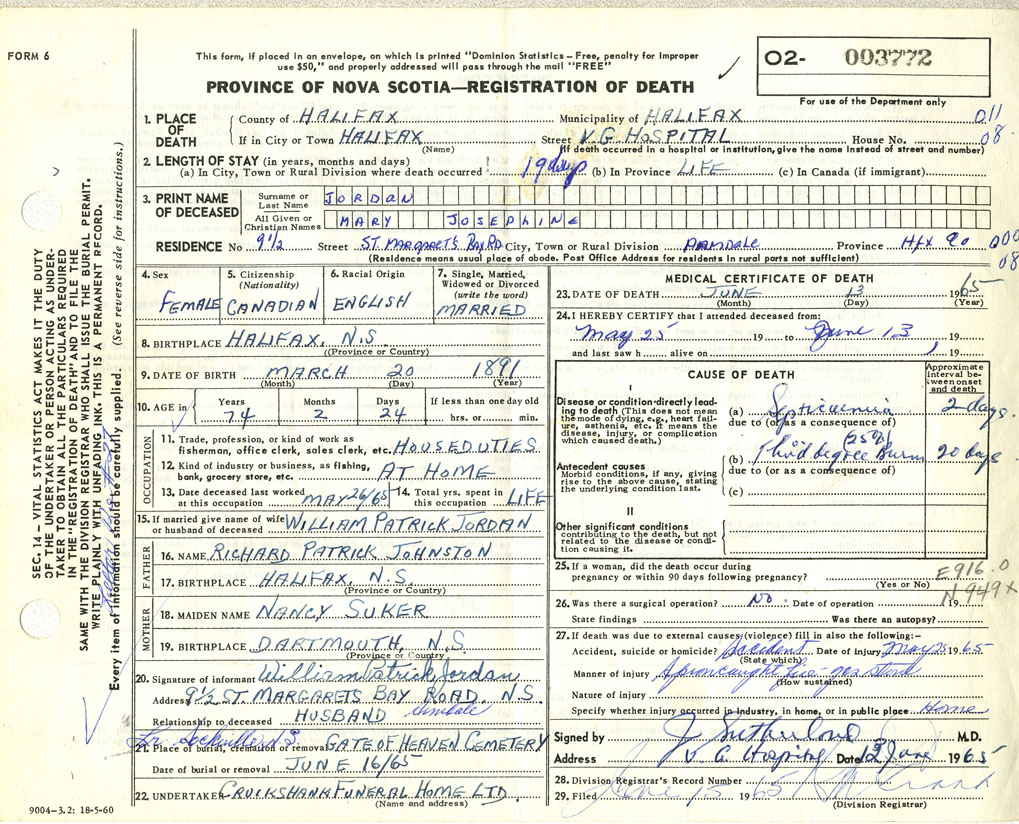 FORM 6
This form, if placed in an envelope, on which is printed "Dominion Statistics – Free, penalty for improper
use $50," and properly addressed will pass through the mail "FREE"
O2- 003772
PROVINCE OF NOVA SCOTIA—REGISTRATION OF DEATH
For use of the Department only
1. PLACE OF DEATH
County of HALIFAX Municipality of HALIFAX 011
If in City or Town HALIFAX Street V.G. HOSPITAL House No. 08
(Name) (If death occurred in a hospital or institution, give the name instead of street and number)
2. LENGTH OF STAY (in years, months and days)
(a) In City, Town or Rural Division where death occurred 19 days (b) In Province LIFE (c) In Canada (if immigrant)
3. PRINT NAME OF DECEASED
Surname or Last Name JORDAN
All Given or Christian Names MARY JOSEPHINE
RESIDENCE No 9 1/2 Street ST. MARGARETS BAY RD City, Town or Rural Division ARMDALE Province Hfx Co 000
(Residence means usual place of abode. Post Office Address for residents in rural parts not sufficient) 08
4. Sex
FEMALE
5. Citizenship
(Nationality)
CANADIAN
6. Racial Origin
ENGLISH
7. Single, Married,
Widowed or Divorced
(write the word)
MARRIED
8. BIRTHPLACE HALIFAX, N.S.
(Province or Country)
9. DATE OF BIRTH MARCH 20 1891
(Month) (Day) (Year)
10. AGE in
Years 74
Months 2
Days 24
If less than one day old
hrs. or min.
OCCUPATION
11. Trade, profession, or kind of work as
fisherman, office clerk, sales clerk, etc. HOUSEDUTIES
12. Kind of industry or business, as fishing,
bank, grocery store, etc. AT HOME
13. Date deceased last worked
at this occupation MAY 26/65
14. Total yrs. spent in
this occupation LIFE
15. If married give name of wife
or husband of deceased WILLIAM PATRICK JORDAN
FATHER
16. NAME RICHARD PATRICK JOHNSTON
17. BIRTHPLACE HALIFAX, N.S.
(Province or Country)
MOTHER
18. MAIDEN NAME NANCY SUKER
19. BIRTHPLACE DARTMOUTH, N.S.
(Province or Country)
20. Signature of informant William Patrick Jordan
Address 9 1/2 ST. MARGARETS BAY ROAD, N.S.
Armdale
Relationship to deceased HUSBAND
21. Place of burial, cremation or removal GATE OF HEAVEN CEMETERY
Date of burial or removal JUNE 16/65
22. UNDERTAKER CRUIKSHANK FUNERAL HOME LTD.
(Name and address)
MEDICAL CERTIFICATE OF DEATH
23. DATE OF DEATH JUNE 13 1965
(Month) (Day) (Year)
24. I HEREBY CERTIFY that I attended deceased from:
May 25 19 to June 13, 19
and last saw h alive on 19
CAUSE OF DEATH
Approximate
interval be-
tween onset
and death
I
Disease or condition directly lead-
ing to death (This does not mean
the mode of dying, e.g., heart fail-
ure, asthenia, etc. It means the
disease, injury, or complication
which caused death.)
(a) Septicaemia 2 days.
due to (or as a consequence of)
(25%)
(b) Third degree Burn 20 days
due to (or as a consequence of)
Antecedent causes
Morbid conditions, if any, giving
rise to the above cause, stating
the underlying condition last.
(c)
II
Other significant conditions
contributing to the death, but not
related to the disease or condi-
tion causing it.
25. If a woman, did the death occur during
pregnancy or within 90 days following pregnancy?
(Yes or No)
E916.0
N949X
26. Was there a surgical operation? No. Date of operation 19
State findings Was there an autopsy?
27. If death was due to external causes (violence) fill in also the following:–
Accident, suicide or homicide? Accident Date of injury May 25 1965
(State which)
Manner of injury Apron caught fire gas stove
(How sustained)
Nature of injury
Specify whether injury occurred in industry, in home, or in public place Home
Signed by J Sutherland M.D.
Address V.G. Hospital Date 13 June 1965
28. Division Registrar's Record Number
29. Filed June 15 1965
(Division Registrar)
SEC. 14 – VITAL STATISTICS ACT MAKES IT THE DUTY
OF THE UNDERTAKER OR PERSON ACTING AS UNDER-
TAKER TO OBTAIN ALL THE PARTICULARS REQUIRED
IN THE "REGISTRATION OF DEATH" AND TO FILE THE
SAME WITH THE DIVISION REGISTRAR WHO SHALL ISSUE THE BURIAL PERMIT.
WRITE PLAINLY WITH UNFADING INK. THIS IS A PERMANENT RECORD.
Every item of information should be carefully supplied. (See reverse side for instructions.)
9004–3.2: 18-5-60